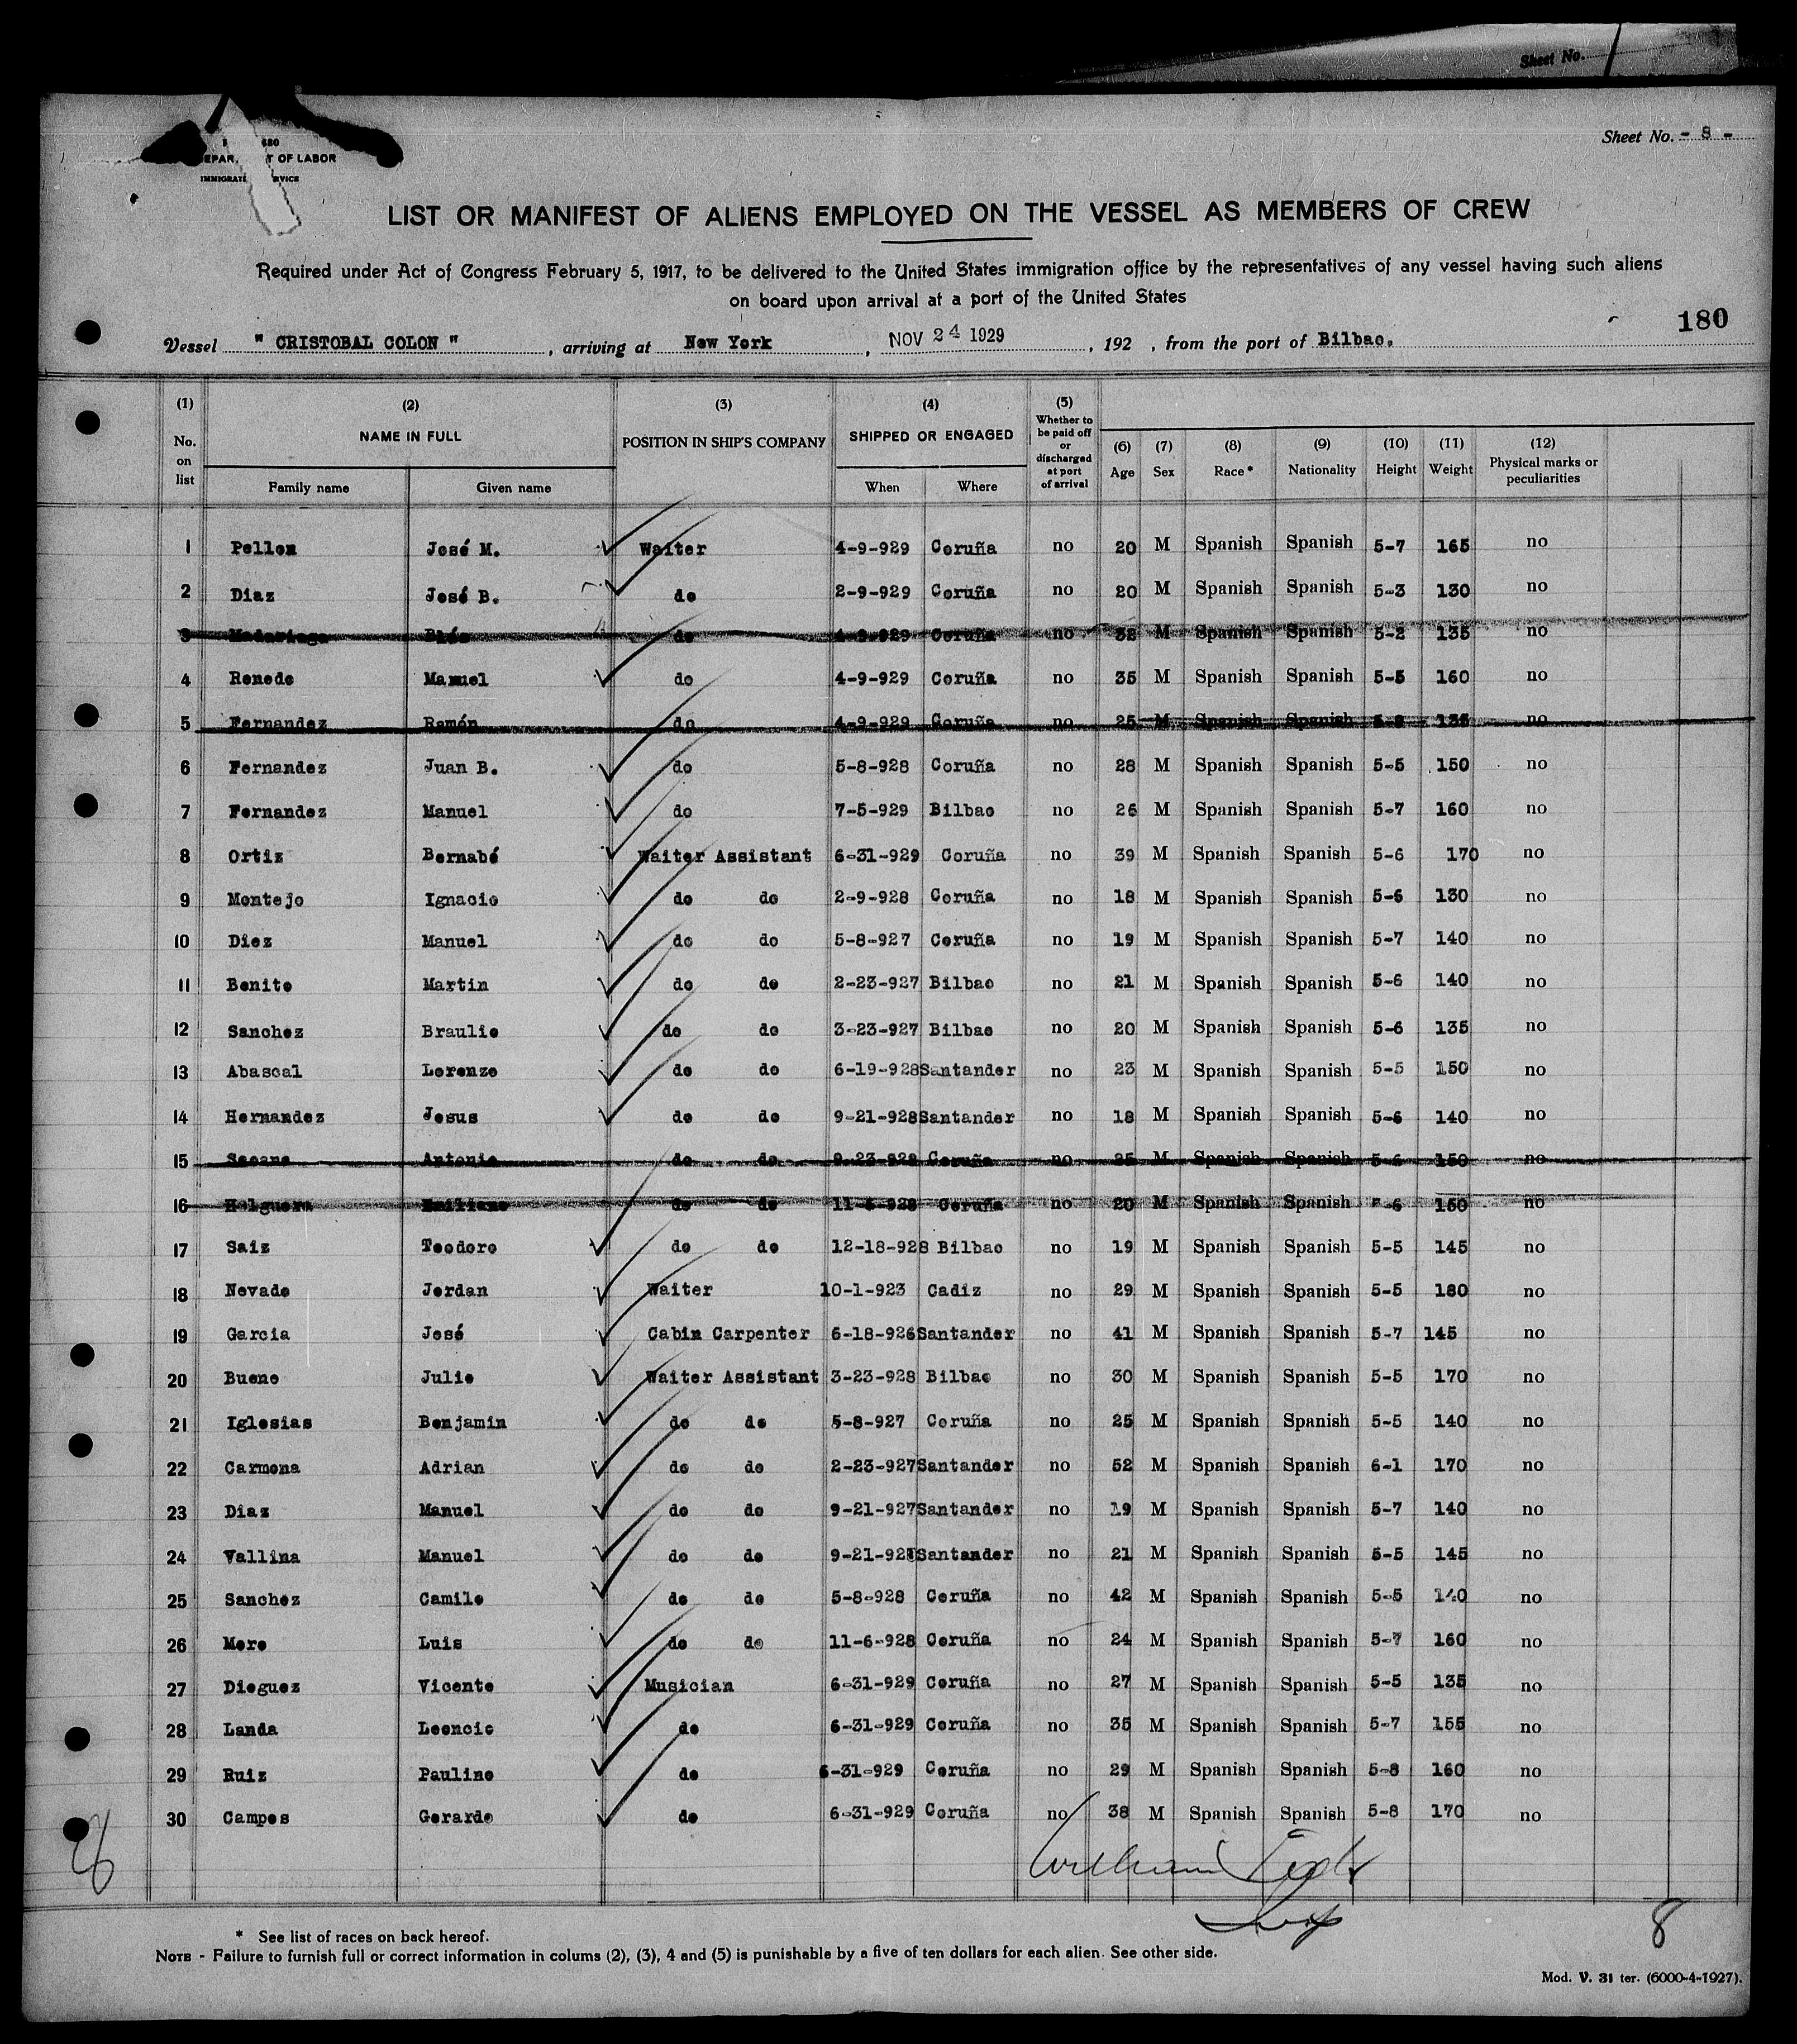 Sheet No.
Sheet No. - 8 -
T OF LABOR
LIST OR MANIFEST OF ALIENS EMPLOYED ON THE VESSEL AS MEMBERS OF CREW
Required under Act of Congress February 5, 1917, to be delivered to the United States immigration office by the representatives of any vessel having such aliens
on board upon arrival at a port of the United States
180
Vessel " CRISTOBAL COLON " , arriving at New York , NOV 24 1929 , 192 , from the port of Bilbao.
(1) (2) (3) (4) (5) (6) (7) (8) (9) (10) (11) (12)
No. on list NAME IN FULL POSITION IN SHIP'S COMPANY SHIPPED OR ENGAGED Whether to be paid off or discharged at port of arrival Age Sex Race* Nationality Height Weight Physical marks or peculiarities
Family name Given name When Where
1 Pellon José M. Waiter 4-9-929 Coruña no 20 M Spanish Spanish 5-7 165 no
2 Diaz José B. do 2-9-929 Coruña no 20 M Spanish Spanish 5-3 130 no
3 Madariaga Blás do 4-9-929 Coruña no 38 M Spanish Spanish 5-2 135 no
4 Renedo Manuel do 4-9-929 Coruña no 35 M Spanish Spanish 5-5 160 no
5 Fernandez Ramón do 4-9-929 Coruña no 25 M Spanish Spanish 135 no
6 Fernandez Juan B. do 5-8-928 Coruña no 28 M Spanish Spanish 5-5 150 no
7 Fernandez Manuel do 7-5-929 Bilbao no 26 M Spanish Spanish 5-7 160 no
8 Ortiz Bernabé Waiter Assistant 6-31-929 Coruña no 39 M Spanish Spanish 5-6 170 no
9 Montejo Ignacio do do 2-9-928 Coruña no 18 M Spanish Spanish 5-6 130 no
10 Diez Manuel do do 5-8-927 Coruña no 19 M Spanish Spanish 5-7 140 no
11 Benito Martin do do 2-23-927 Bilbao no 21 M Spanish Spanish 5-6 140 no
12 Sanchez Braulio do do 3-23-927 Bilbao no 20 M Spanish Spanish 5-6 135 no
13 Abascal Lorenzo do do 6-19-928 Santander no 23 M Spanish Spanish 5-5 150 no
14 Hernandez Jesus do do 9-21-928 Santander no 18 M Spanish Spanish 5-6 140 no
15 Seoane Antonio do do 9-23-928 Coruña no 25 M Spanish Spanish 5-6 150 no
16 Holguera Emiliano do do 11-6-928 Coruña no 20 M Spanish Spanish 5-6 150 no
17 Saiz Teodoro do do 12-18-928 Bilbao no 19 M Spanish Spanish 5-5 145 no
18 Nevado Jordan Waiter 10-1-923 Cadiz no 29 M Spanish Spanish 5-5 180 no
19 Garcia José Cabin Carpenter 6-18-926 Santander no 41 M Spanish Spanish 5-7 145 no
20 Bueno Julio Waiter Assistant 3-23-928 Bilbao no 30 M Spanish Spanish 5-5 170 no
21 Iglesias Benjamin do do 5-8-927 Coruña no 25 M Spanish Spanish 5-5 140 no
22 Carmona Adrian do do 2-23-927 Santander no 52 M Spanish Spanish 6-1 170 no
23 Diaz Manuel do do 9-21-927 Santander no 19 M Spanish Spanish 5-7 140 no
24 Vallina Manuel do do Santander no 21 M Spanish Spanish 5-5 145 no
25 Sanchez Camilo do do 5-8-928 Coruña no 42 M Spanish Spanish 5-5 140 no
26 Moro Luis do do 11-6-928 Coruña no 24 M Spanish Spanish 5-7 160 no
27 Dieguez Vicente Musician 6-31-929 Coruña no 27 M Spanish Spanish 5-5 135 no
28 Landa Leoncio do 6-31-929 Coruña no 35 M Spanish Spanish 5-7 155 no
29 Ruiz Paulino do 6-31-929 Coruña no 29 M Spanish Spanish 5-8 160 no
30 Campos Gerardo do 6-31-929 Coruña no 38 M Spanish Spanish 5-8 170 no
William
26
8
* See list of races on back hereof.
NOTE - Failure to furnish full or correct information in colums (2), (3), 4 and (5) is punishable by a five of ten dollars for each alien. See other side.
Mod. V. 31 ter. (6000-4-1927).